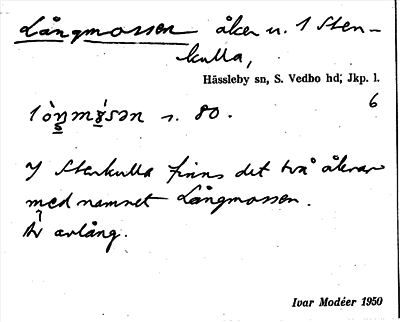 Långmossen åker n. 1 Sten-
kulla,
Hässleby sn, S. Vedbo hd, Jkp. l.
6
s. 80.
I Stenkulla finns det två åkrar
med namnet Långmossen.
Är avlång.
Ivar Modéer 1950